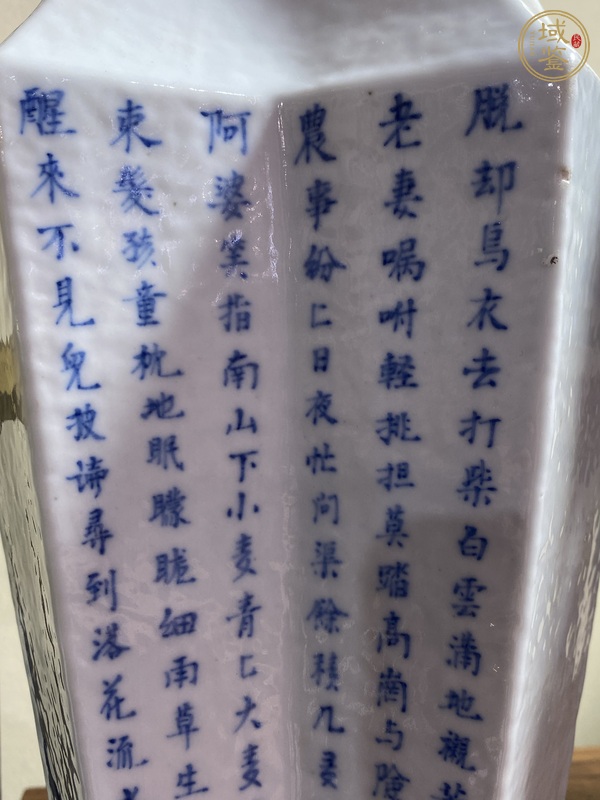 脱却鳥衣去打柴白雲滿地襯
老妻嘱咐輕挑担莫踏高崗与險
農事紛匕日夜忙问渠餘積几
阿婆笑指南山下小麦青匕大麦
束髮孩童枕地眠朦胧细雨草生
醒來不見兒披讀尋到落花流
域鉴